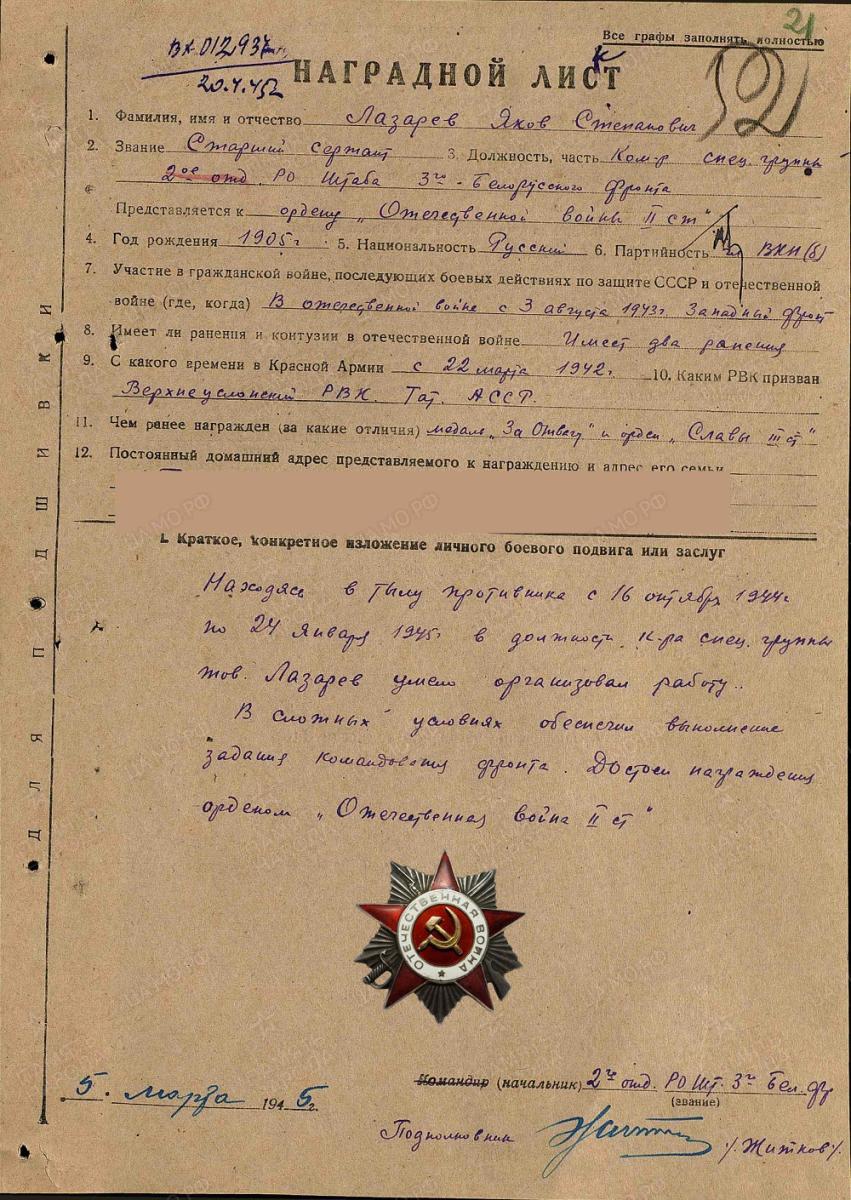 21
Все графы заполнять полностью
вх. 012937
20.4.45г
НАГРАДНОЙ ЛИСТ
1. Фамилия, имя и отчество Лазарев Яков Степанович
2. Звание Старший сержант 3. Должность, часть Ком-р спец. группы
2ое отд. РО Штаба 3го - Белорусского фронта
Представляется к ордену „Отечественной войны II ст"
4. Год рождения 1905г 5. Национальность Русский 6. Партийность ВКП(б)
7. Участие в гражданской войне, последующих боевых действиях по защите СССР и отечественной
войне (где, когда) В отечественной войне с 3 августа 1943г. Западный фронт
8. Имеет ли ранения и контузии в отечественной войне Имеет два ранения
9. С какого времени в Красной Армии с 22 марта 1942г. 10. Каким РВК призван
Верхнеуслонский РВК. Тат. АССР.
11. Чем ранее награжден (за какие отличия) медаль „За Отвагу" и орден „Славы III ст"
12. Постоянный домашний адрес представляемого к награждению и адрес его семьи
I. Краткое, конкретное изложение личного боевого подвига или заслуг
Находясь в тылу противника с 16 октября 1944г
по 24 января 1945г в должности к-ра спец. группы
тов. Лазарев умело организовал работу.
В сложных условиях обеспечил выполнение
задания командования фронта. Достоин награждения
орденом „Отечественная война II ст"
ДЛЯ ПОДШИВКИ
ОТЕЧЕСТВЕННАЯ ВОЙНА
Командир (начальник) 2го отд. РО Шт. 3го Бел. фр
(звание)
5. марта 1945г.
Подполковник /Житков/.
ЦАМО.РФ